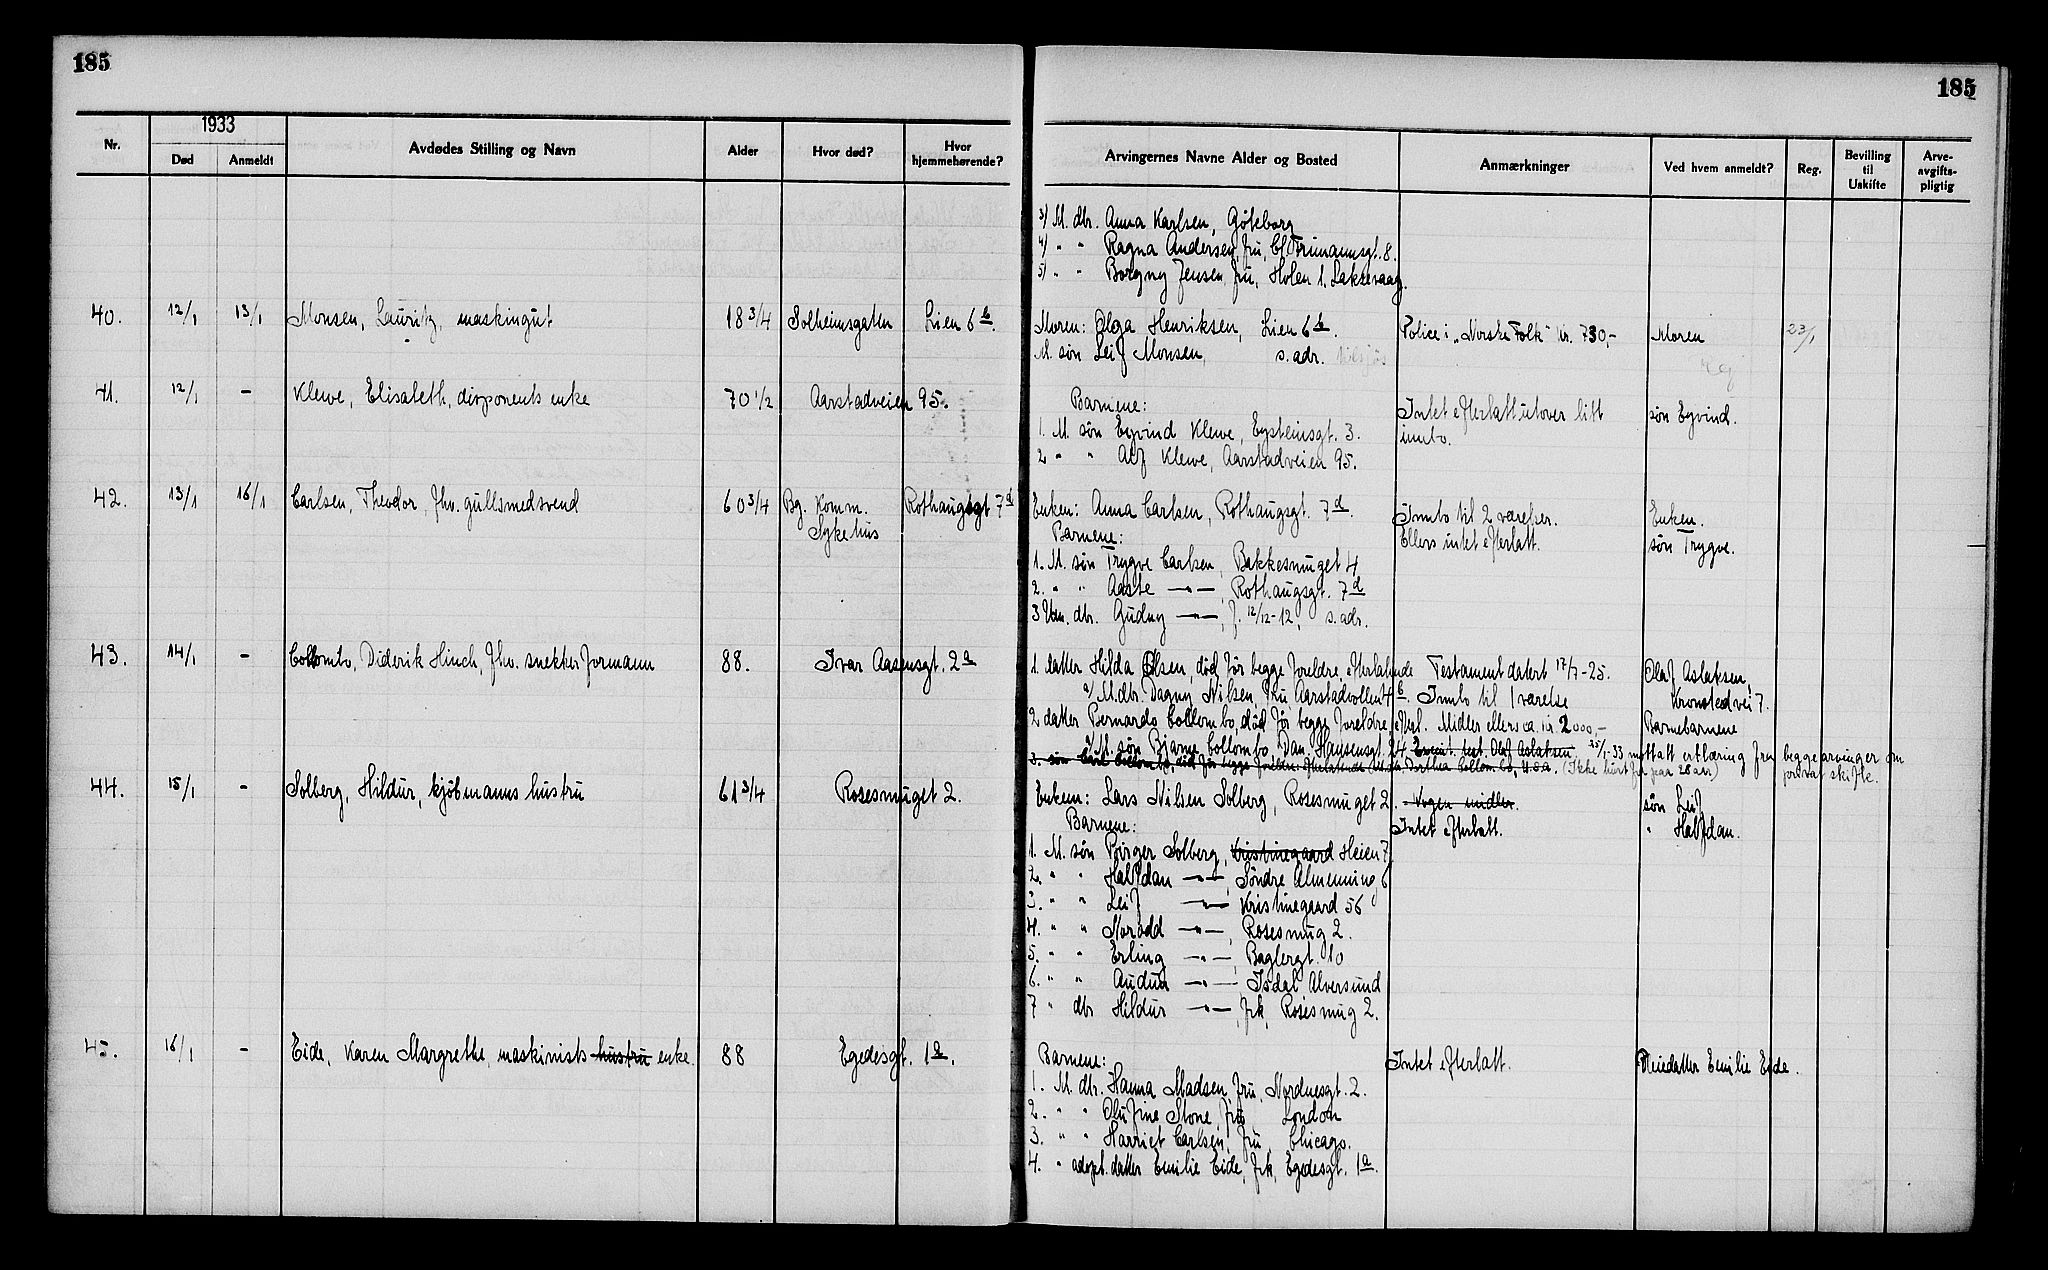 185
185
1933
Nr.
Død
Anmeldt
Avdødes Stilling og Navn
Alder
Hvor død?
Hvor hjemmehørende?
Arvingernes Navne Alder og Bosted
Anmærkninger
Ved hvem anmeldt?
Reg.
Bevilling til Uskifte
Arve-avgifts-pligtig
3/ M. dtr. Anna Karlsen, Göteborg
4/ " " Ragna Andersen, fru, Cl. Frimannsgt. 8.
5/ " " Borgny Jensen, fru, Holen 1. Laksevaag.
40. 12/1 13/1 Monsen, Lauritz, maskingut 18 3/4 Solheimsgaten Lien 6 b.
Moren: Olga Henriksen, Lien 6 b. Police i „Norske Folk" kr. 730,- Moren 23/1
M. søn Leif Monsen, s. adr. tilsjøs
41. 12/1 - Klewe, Elisabeth, disponents enke 70 1/2 Aarstadveien 95.
Barnene: Intet efterlatt utover litt søn Eyvind.
1. M. søn Eyvind Klewe, Eysteinsgt. 3. innbo.
2 " " Alf Klewe, Aarstadveien 95.
42. 13/1 16/1 Carlsen, Theodor, fhv. gullsmedsvend 60 3/4 Bg. Komm. Rothaugsgt 7 d
Sykehus
Enken: Anna Carlsen, Rothaugsgt. 7 d. Innbo til 2 værelser. Enken.
Barnene: Ellers intet efterlatt. søn Trygve.
1. M. søn Trygve Carlsen, Bakkesmuget 4
2. " " Aaste —"—, Rothaugsgt. 7 d
3 Um. dtr. Gudny —"—, f. 12/12-12, s. adr.
43. 14/1 - Collombo, Diderik Hinch, fhv. snekkerformann 88. Ivar Aasensgt. 2 a
1. datter Hilda Olsen, død før begge foreldre, efterlatende Testament datert 17/7-25. Olaf Aslaksen,
a/ M. dtr. Dagny Nilsen, fru Aarstadvollen 4 b. Innbo til 1 værelse Kronstadvei 7.
2 datter Bernardo Collombo, død før begge foreldre, efterl. Midler ellers ca. kr. 2000,- Barnebarnene
a/ M. søn Bjarne Collombo, Dan. Hansensgt. 24 test. Olaf Aslaksen. 25/1-33 mottatt erklæring fra begge arvinger om
3. søn Carl Collombo, død før begge foreldre: efterlatende Collombo, U.S.A. (Ikke hørt fra paar 28 aar) privat skifte.
44. 15/1 - Solberg, Hildur, kjøbmanns hustru 61 3/4 Rosesmuget 2.
Enkem: Lars Nilsen Solberg, Rosesmuget 2. Nogen midler. søn Leif
Barnene: Intet efterlatt. " Halfdan.
1. M. søn Birger Solberg, Kristinegaard Heien 7
2. " " Halfdan —"—, Søndre Almenning 6
3. " " Leif —"— Kristinegaard 56
4. " " Norodd —"—, Rosesmug 2.
5. " " Erling —"—, Baglergt. 10
6. " " Audun —"— Isdal Alversund
7 " dtr Hildur —"—, frk, Rosesmug 2.
45. 16/1 - Eide, Karen Margrethe, maskinists hustru enke. 88 Egedesgt. 1 a.
Barnene: Intet efterlatt. Pleiedatter Emilie Eide.
1. M. dtr. Hanna Madsen, fru, Nordnesgt. 2.
2. " " Olufine Stone, fru London
3. " " Harriet Carlsen, fru, Chicago.
4. " adopt. datter Emilie Eide, frk, Egedesgt. 1 a.